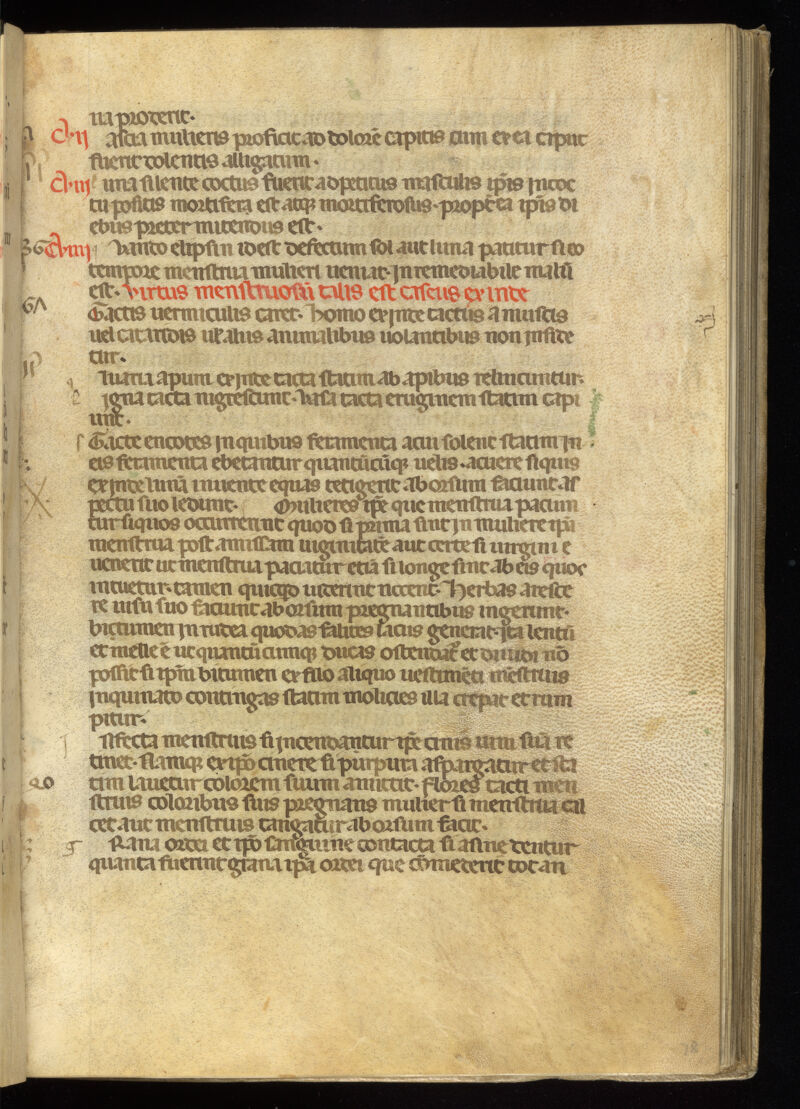 ua proderit.
C. ii ascia mulieris proficit ad dolorẽ capitis cum ex ea caput
fuerit dolentis alligatum.
C. iii una silente coctus fuerit ad petitus masculis ip̃is incoc
tu positis mortifera est atq; mortiferosus. propt̃ea ip̃is di
ebus preter mitendus est.
C iiii Vando elipsin id est defectum sol aut luna patitur si eo
tempore menstrua mulieri ueniat. in remediabile malũ
est. Virtus menstruosũ talis est caseus ex inde
Tactis uermiculis caret. Homo ex inde tactus a muscis
uel catartois uł aliis animalibus uolantibus non inside
tur.
luaria apum ex inde tacta statim ab apibus relincuntur.
igna tacta nigrescunt. Vasa tacta eruginem statim capi
unt.
Tacte encotes in quibus feramenta acui solent statim in
eis feramenta ebetantur quantũcũq; uelis. acuere siquis
ex inde lunã inuente equas tetigerit ab orsum faciunt as
pectu suo ledunt. Mulieres ip̃e que menstrua pacium
tur siquos occurrerint quod si prima sint in muliere ip̃a
menstrua post amissam uiginitatẽ aut certe si uirgini e
uenerit ut menstrua paciatur etiã si longe sint ab eis quoc
intuetur. tamen quicq̃d uiderint nocent. Herbas aresce
re uisu suo faciunt ab orsum pregnantibus ingerunt.
bictumen in iudea quodas falites lacus generat. ita lentũ
et melle ẽ ut quantũ cunnq; ducas ostendat᷑ et diuidi nõ
possit si ip̃m bitumen ex filo aliquo uestimẽti mẽstruis
inquinato contingas statim molicies illa crepat et rum
pitur.
Nfecta menstruis si incendantur ip̃e cinis uim suã re
tinet. Namq; ex ip̃o cinere si purpura aspargatur et sta
tim lauetur colorem suum amittit. Flores tacti men
struis coloribus suis pregnans mulier si menstrua cal
cet aut menstruis tangatur ab orsum facit.
Rana ordei et ip̃o sanguine contacta si asine dentur
quanta fuerint grana ip̃a ordei que cõmederit tot an